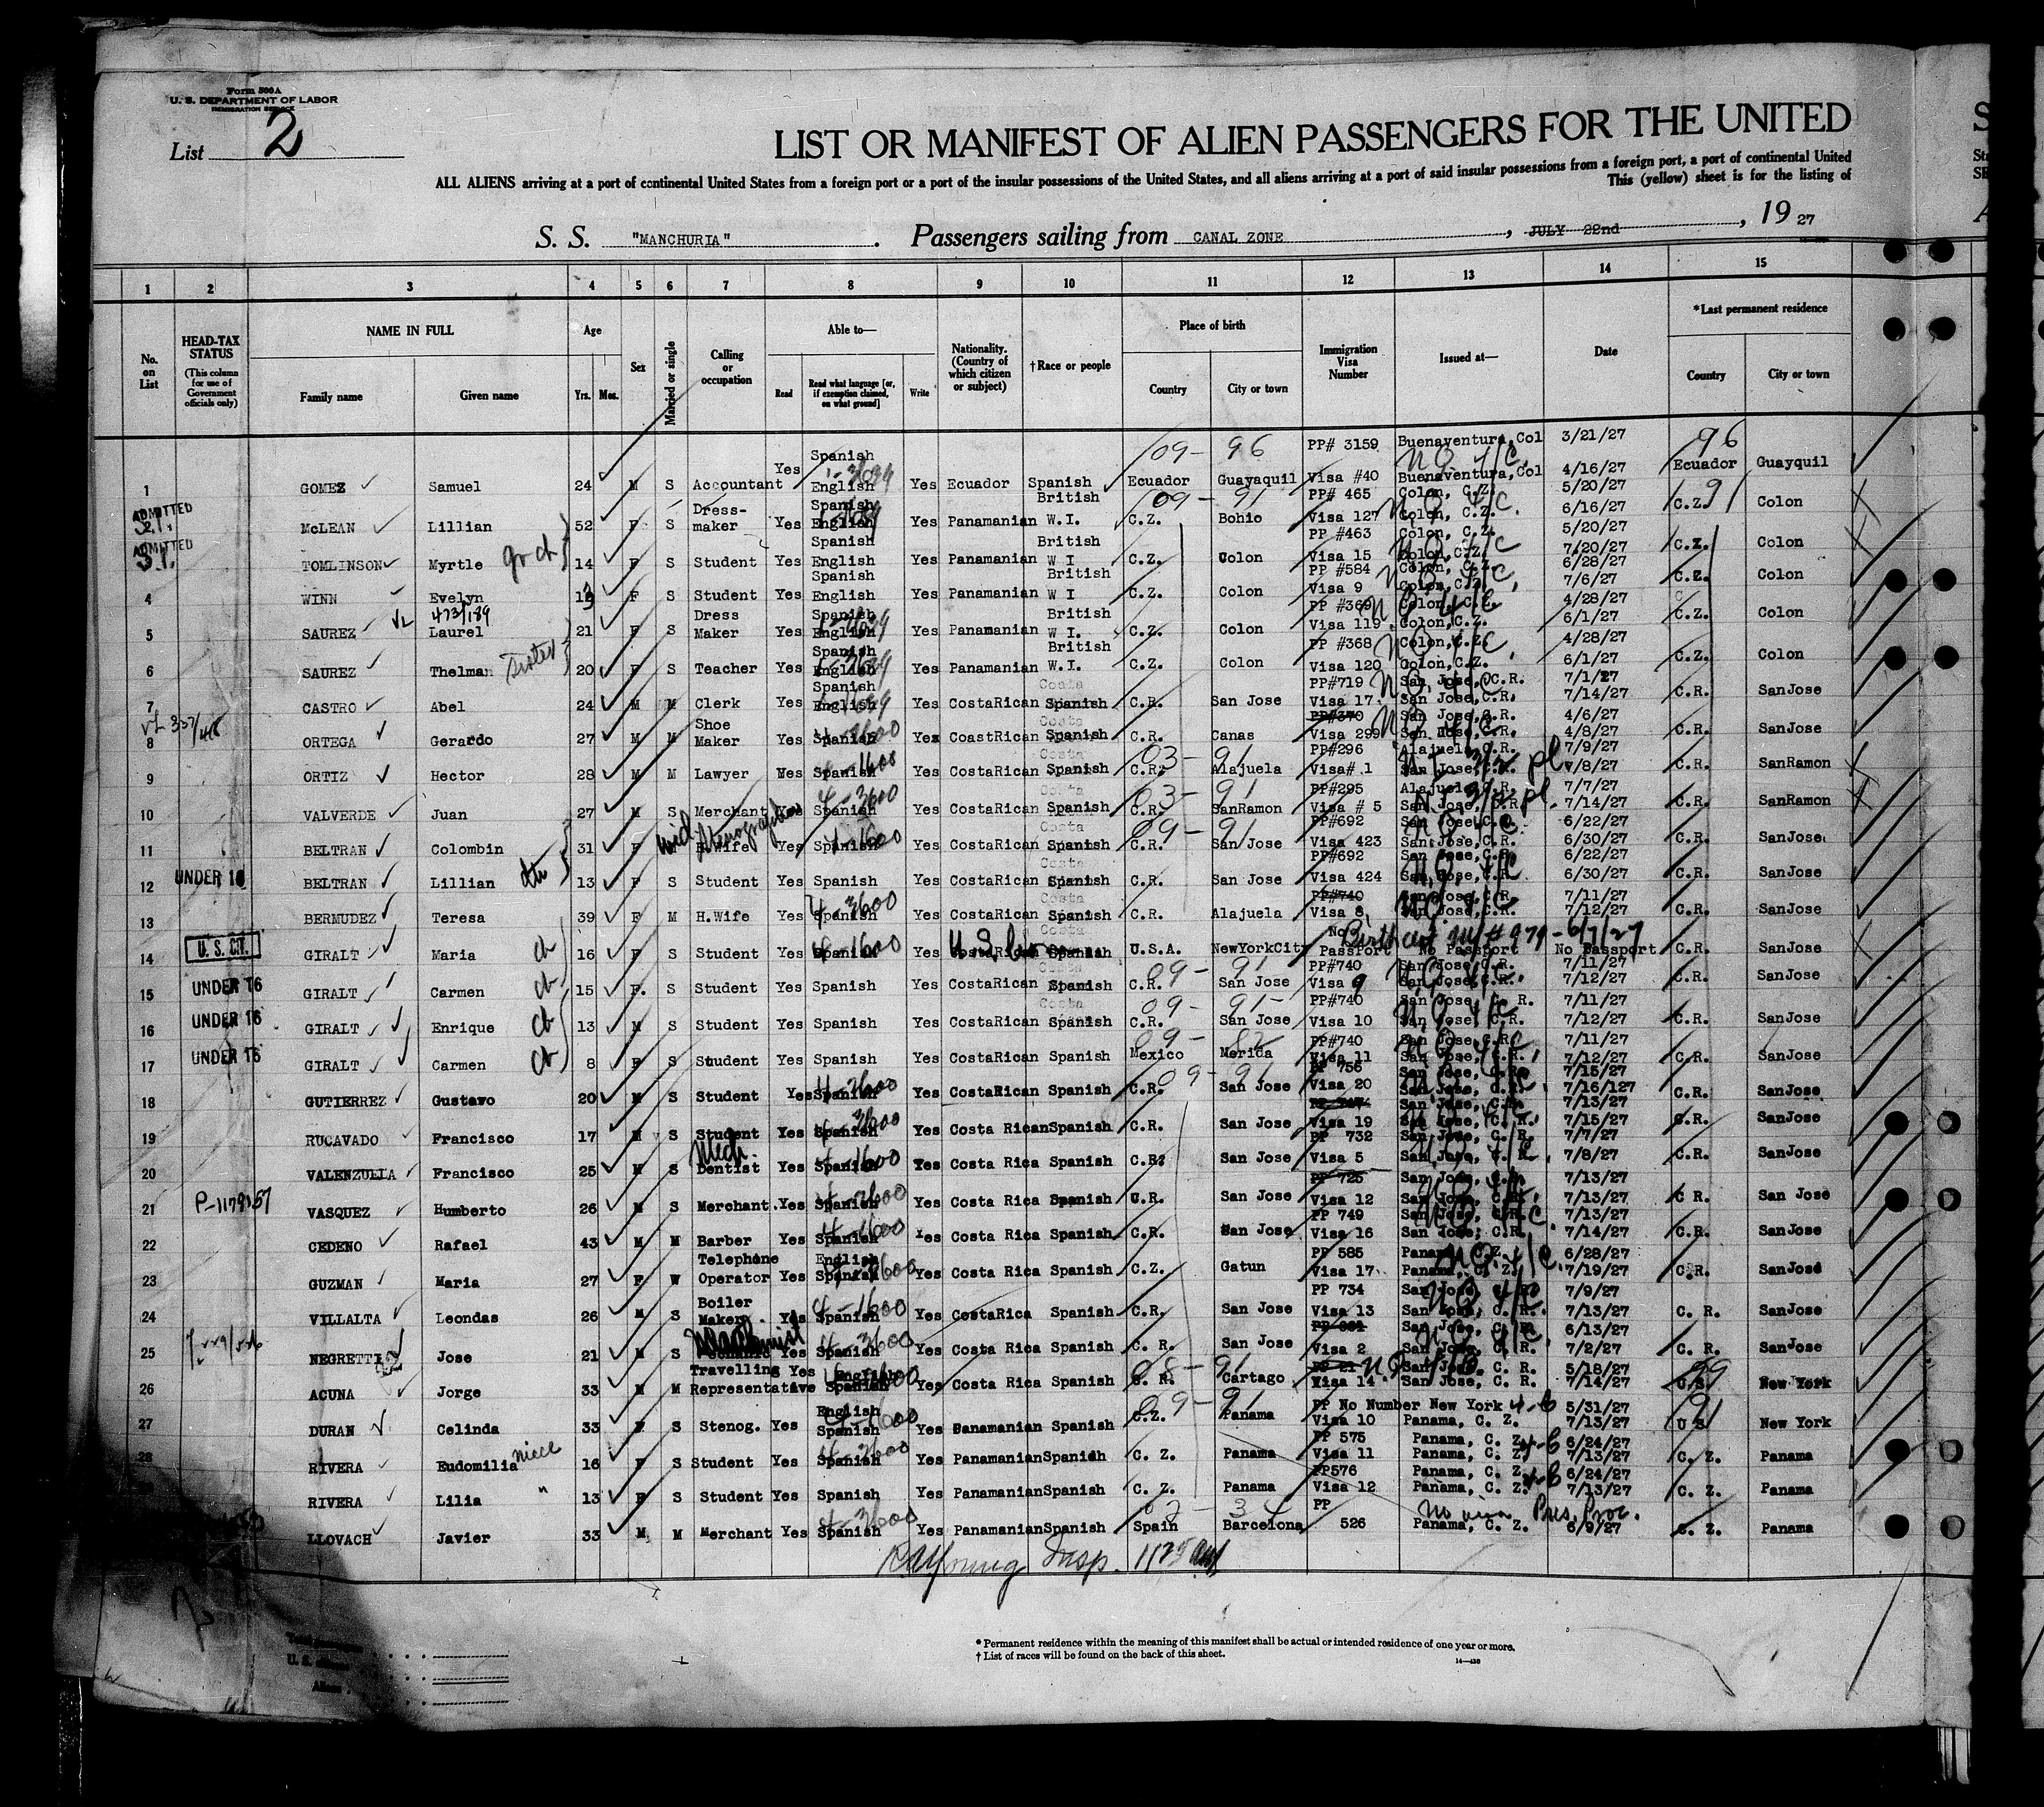 Form 500A
U. S. DEPARTMENT OF LABOR
IMMIGRATION SERVICE
List 2
LIST OR MANIFEST OF ALIEN PASSENGERS FOR THE UNITED
ALL ALIENS arriving at a port of continental United States from a foreign port or a port of the insular possessions of the United States, and all aliens arriving at a port of said insular possessions from a foreign port, a port of continental United
This (yellow) sheet is for the listing of
S. S. "MANCHURIA" . Passengers sailing from CANAL ZONE , JULY 22nd , 19 27
1 2 3 4 5 6 7 8 9 10 11 12 13 14 15
No. on List
HEAD-TAX STATUS (This column for use of Government officials only)
NAME IN FULL Family name Given name
Age Yrs. Mos.
Sex
Married or single
Calling or occupation
Able to— Read Read what language [or, if exemption claimed, on what ground] Write
Nationality. (Country of which citizen or subject)
†Race or people
Place of birth Country City or town
Immigration Visa Number
Issued at—
Date
*Last permanent residence Country City or town
1 GOMEZ Samuel 24 M S Accountant Yes Spanish English Yes Ecuador Spanish Ecuador Guayaquil PP# 3159 Visa #40 Buenaventura, Col Buenaventura, Col 3/21/27 4/16/27 Ecuador Guayquil
ADMITTED McLEAN Lillian 52 F S Dress-maker Yes Spanish English Yes Panamanian British W.I. C.Z. Bohio PP# 465 Visa 127 Colon, C.Z. Colon, C.Z. 5/20/27 6/16/27 C.Z. Colon
ADMITTED TOMLINSON Myrtle 14 F S Student Yes Spanish English Yes Panamanian British W I C.Z. Colon PP #463 Visa 15 Colon, C.Z. Colon, C.Z. 5/20/27 7/20/27 C.Z. Colon
4 WINN Evelyn F S Student Yes Spanish English Yes Panamanian British W I C.Z. Colon PP #584 Visa 9 Colon, C.Z. Colon, C.Z. 6/28/27 7/6/27 C.Z. Colon
5 SAUREZ 473/189 Laurel 21 F S Dress Maker Yes Spanish English Yes Panamanian British W I. C.Z. Colon PP #369 Visa 119 Colon, C.Z. Colon, C.Z. 4/28/27 6/1/27 C.Z. Colon
6 SAUREZ Thelman sister 20 F S Teacher Yes Spanish English Yes Panamanian British W.I. C.Z. Colon PP #368 Visa 120 Colon, C.Z. Colon, C.Z. 4/28/27 6/1/27 C.Z. Colon
7 CASTRO Abel 24 M M Clerk Yes Spanish English Yes CostaRican Spanish C.R. San Jose PP#719 Visa 17 San Jose, C.R. San Jose, C.R. 7/1/27 7/14/27 C.R. SanJose
8 ORTEGA Gerardo 27 M M Shoe Maker Yes Spanish Yes CoastRican Spanish C.R. Canas PP#370 Visa 299 San Jose, C.R. San Jose, C.R. 4/6/27 4/8/27 C.R. SanJose
9 ORTIZ Hector 28 M M Lawyer Yes Spanish Yes CostaRican Spanish C.R. Alajuela PP#296 Visa# 1 Alajuela, C.R. San Jose, C.R. 7/9/27 7/8/27 C.R. SanRamon
10 VALVERDE Juan 27 M S Merchant Yes Spanish Yes CostaRican Spanish C.R. SanRamon PP#295 Visa # 5 Alajuela, C.R. San Jose, C.R. 7/7/27 7/14/27 C.R. SanRamon
11 BELTRAN Colombin 31 F wid Stenographer H.Wife Yes Spanish Yes CostaRican Spanish C.R. San Jose PP#692 Visa 423 San Jose, C.R. San Jose, C.R. 6/22/27 6/30/27 C.R. SanJose
12 UNDER 16 BELTRAN Lillian 13 F S Student Yes Spanish Yes CostaRican Spanish C.R. San Jose PP#692 Visa 424 San Jose, C.R. San Jose, C.R. 6/22/27 6/30/27 C.R. SanJose
13 BERMUDEZ Teresa 39 F M H.Wife Yes Spanish Yes CostaRican Spanish C.R. Alajuela PP#740 Visa 8 San Jose, C.R. San Jose, C.R. 7/11/27 7/12/27 C.R. SanJose
14 U. S. CIT. GIRALT Maria 16 F S Student Yes Spanish Yes CostaRican Spanish U.S.A. NewYorkCity No Passport No Passport No Passport C.R. SanJose
15 UNDER 16 GIRALT Carmen 15 F. S Student Yes Spanish Yes CostaRican Spanish C.R. San Jose PP#740 Visa 9 San Jose, C.R. San Jose, C.R. 7/11/27 7/12/27 C.R. SanJose
16 UNDER 16 GIRALT Enrique 13 M S Student Yes Spanish Yes CostaRican Spanish C.R. San Jose PP#740 Visa 10 San Jose, C. R. San Jose, C.R. 7/11/27 7/12/27 C.R. SanJose
17 UNDER 16 GIRALT Carmen 8 F S Student Yes Spanish Yes CostaRican Spanish Mexico Merida PP#740 Visa 11 San Jose, C.R. San Jose, C.R. 7/11/27 7/12/27 C.R. SanJose
18 GUTIERREZ Gustavo 20 M S Student Yes Spanish Yes CostaRican Spanish C.R. San Jose PP 756 Visa 20 San Jose, C.R. San Jose, C.R. 7/15/27 7/16/127 C.R. SanJose
19 RUCAVADO Francisco 17 M S Student Yes Spanish Yes Costa Rican Spanish C.R. San Jose Visa 19 San Jose, C.R. San Jose, C.R. 7/13/27 7/15/27 C.R. SanJose
20 VALENZUELA Francisco 25 M S Mech. Dentist Yes Spanish Yes Costa Rica Spanish C.R. San Jose PP 732 Visa 5 San Jose, C. R. San Jose, C. R. 7/7/27 7/8/27 C.R. SanJose
21 VASQUEZ Humberto 26 M S Merchant. Yes Spanish Yes Costa Rica Spanish C.R. San Jose PP 725 Visa 12 San Jose, C.R. San Jose, C.R. 7/13/27 7/13/27 C R. San Jose
22 CEDENO Rafael 43 M M Barber Yes Spanish Yes Costa Rica Spanish C.R. San Jose PP 749 Visa 16 San Jose, C.R. San Jose, C.R. 7/13/27 7/14/27 C.R. SanJose
23 GUZMAN Maria 27 F W Telephone Operator Yes English Spanish Yes Costa Rica Spanish C.Z. Gatun PP 585 Visa 17 Panama, C.Z. Panama, C. Z. 6/28/27 7/19/27 C.R. SanJose
24 VILLALTA Leondas 26 M S Boiler Maker Yes Spanish Yes CostaRica Spanish C.R. San Jose PP 734 Visa 13 San Jose, C. R. San Jose, C. R. 7/9/27 7/13/27 C. R. SanJose
25 NEGRETTI Jose 21 M S Yes Spanish Yes Costa Rica Spanish C. R. San Jose Visa 2 San Jose, C. R. San Jose, C. R. 6/13/27 7/2/27 C. R. SanJose
26 ACUNA Jorge 33 M M Travelling Representative Yes English Spanish Yes Costa Rica Spanish C. R. Cartago PP 21 Visa 14 San Jose, C. R. San Jose, C. R. 5/18/27 7/14/27 U.S. New York
27 DURAN Celinda 33 F S Stenog. Yes English Spanish Yes Panamanian Spanish C.Z. Panama PP No Number New York Visa 10 Panama, C. Z. 5/31/27 7/13/27 U S New York
28 RIVERA Eudomilia niece 16 F S Student Yes Spanish Yes Panamanian Spanish C. Z. Panama PP 575 Visa 11 Panama, C. Z. Panama, C. Z. 6/24/27 7/13/27 C. Z. Panama
RIVERA Lilia " 13 F S Student Yes Spanish Yes Panamanian Spanish C. Z. Panama PP576 Visa 12 Panama, C. Z. Panama, C. Z. 6/24/27 7/13/27 C. Z. Panama
LLOVACH Javier 33 M M Merchant Yes Spanish Yes Panamanian Spanish Spain Barcelona PP 526 No visa Pres. Proc. Panama, C. Z. 6/9/27 C. Z. Panama
Insp.
* Permanent residence within the meaning of this manifest shall be actual or intended residence of one year or more.
† List of races will be found on the back of this sheet.